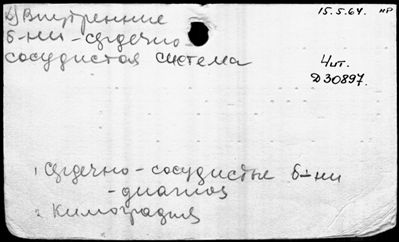 2) Внутренние
б-ни - сердечно
сосудистая система
15.5.64. НР
Чит.
D 30897.
1 Сердечно-сосудистые б-ни
- диагноз
2 Кимография